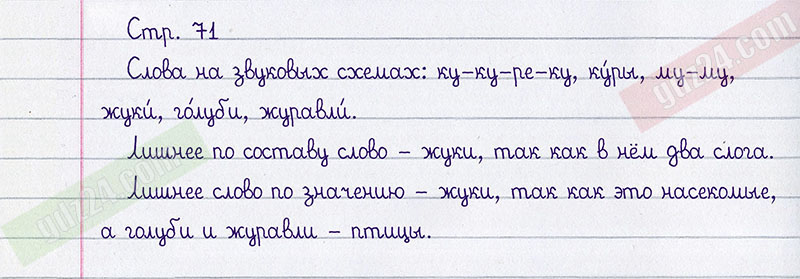 Стр. 71
Слова на звуковых схемах: ку-ку-ре-ку, ку́ры, му-му,
жуки́, го́луби, журавли́.
Лишнее по составу слово – жуки, так как в нём два слога.
Лишнее слово по значению – жуки, так как это насекомые,
а голуби и журавли – птицы.
gdz24.com
gdz24.com